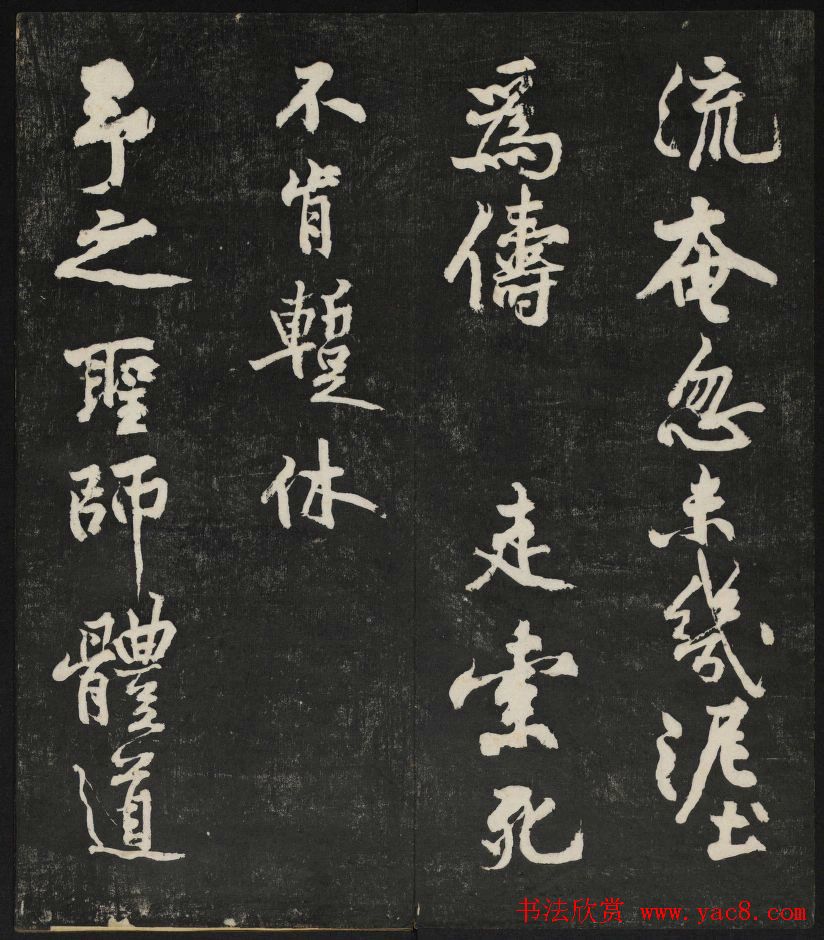 流奄忽未幾泥土
為儔 走索死
不肯蹔休
予之聖師體道
书法欣赏 www.yac8.com